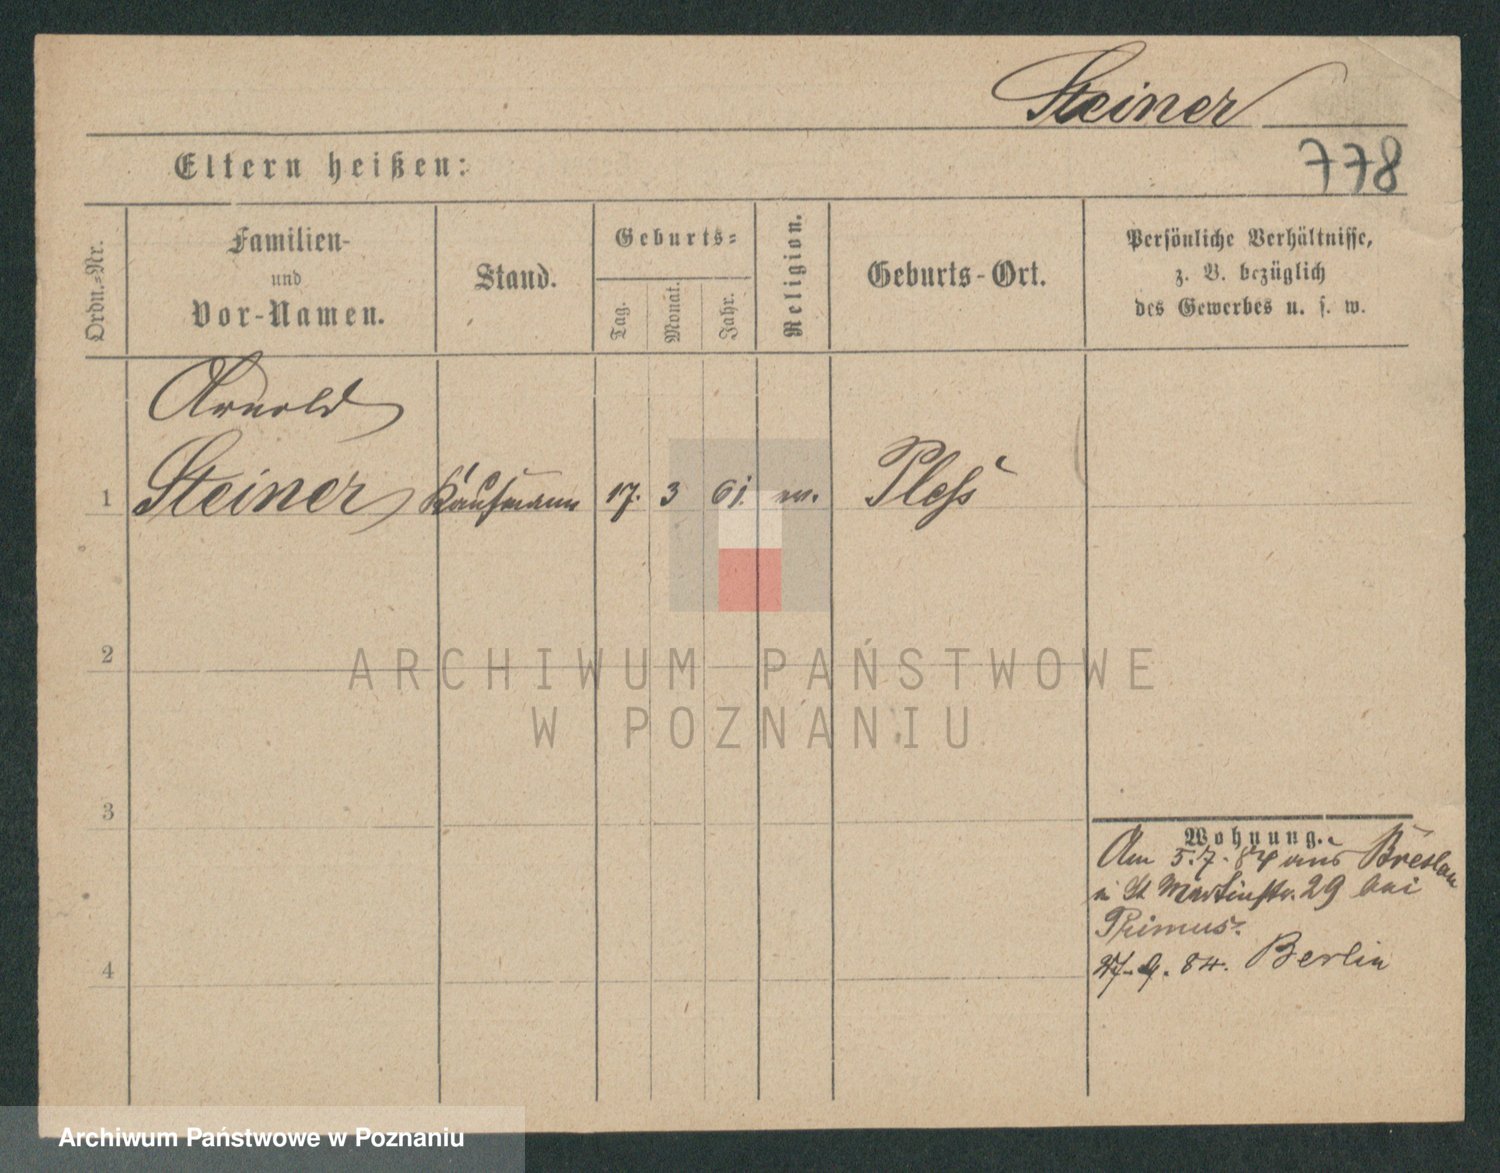 Steiner
778
Eltern heißen:
Ordn.-Nr.
Familien-
und
Vor-Namen.
Stand.
Geburts-
Tag.
Monat.
Jahr.
Religion.
Geburts-Ort.
Persönliche Verhältnisse,
z. B. bezüglich
des Gewerbes u. s. w.
Arnold
1 Steiner Kaufmann 17. 3 61. Pleß
2
3
4
Wohnung.
Am 5.7.84 aus Breslau
in St Martinstr. 29 bei
Primus.
27.9.84. Berlin
ARCHIWUM PAŃSTWOWE
W POZNANIU
Archiwum Państwowe w Poznaniu